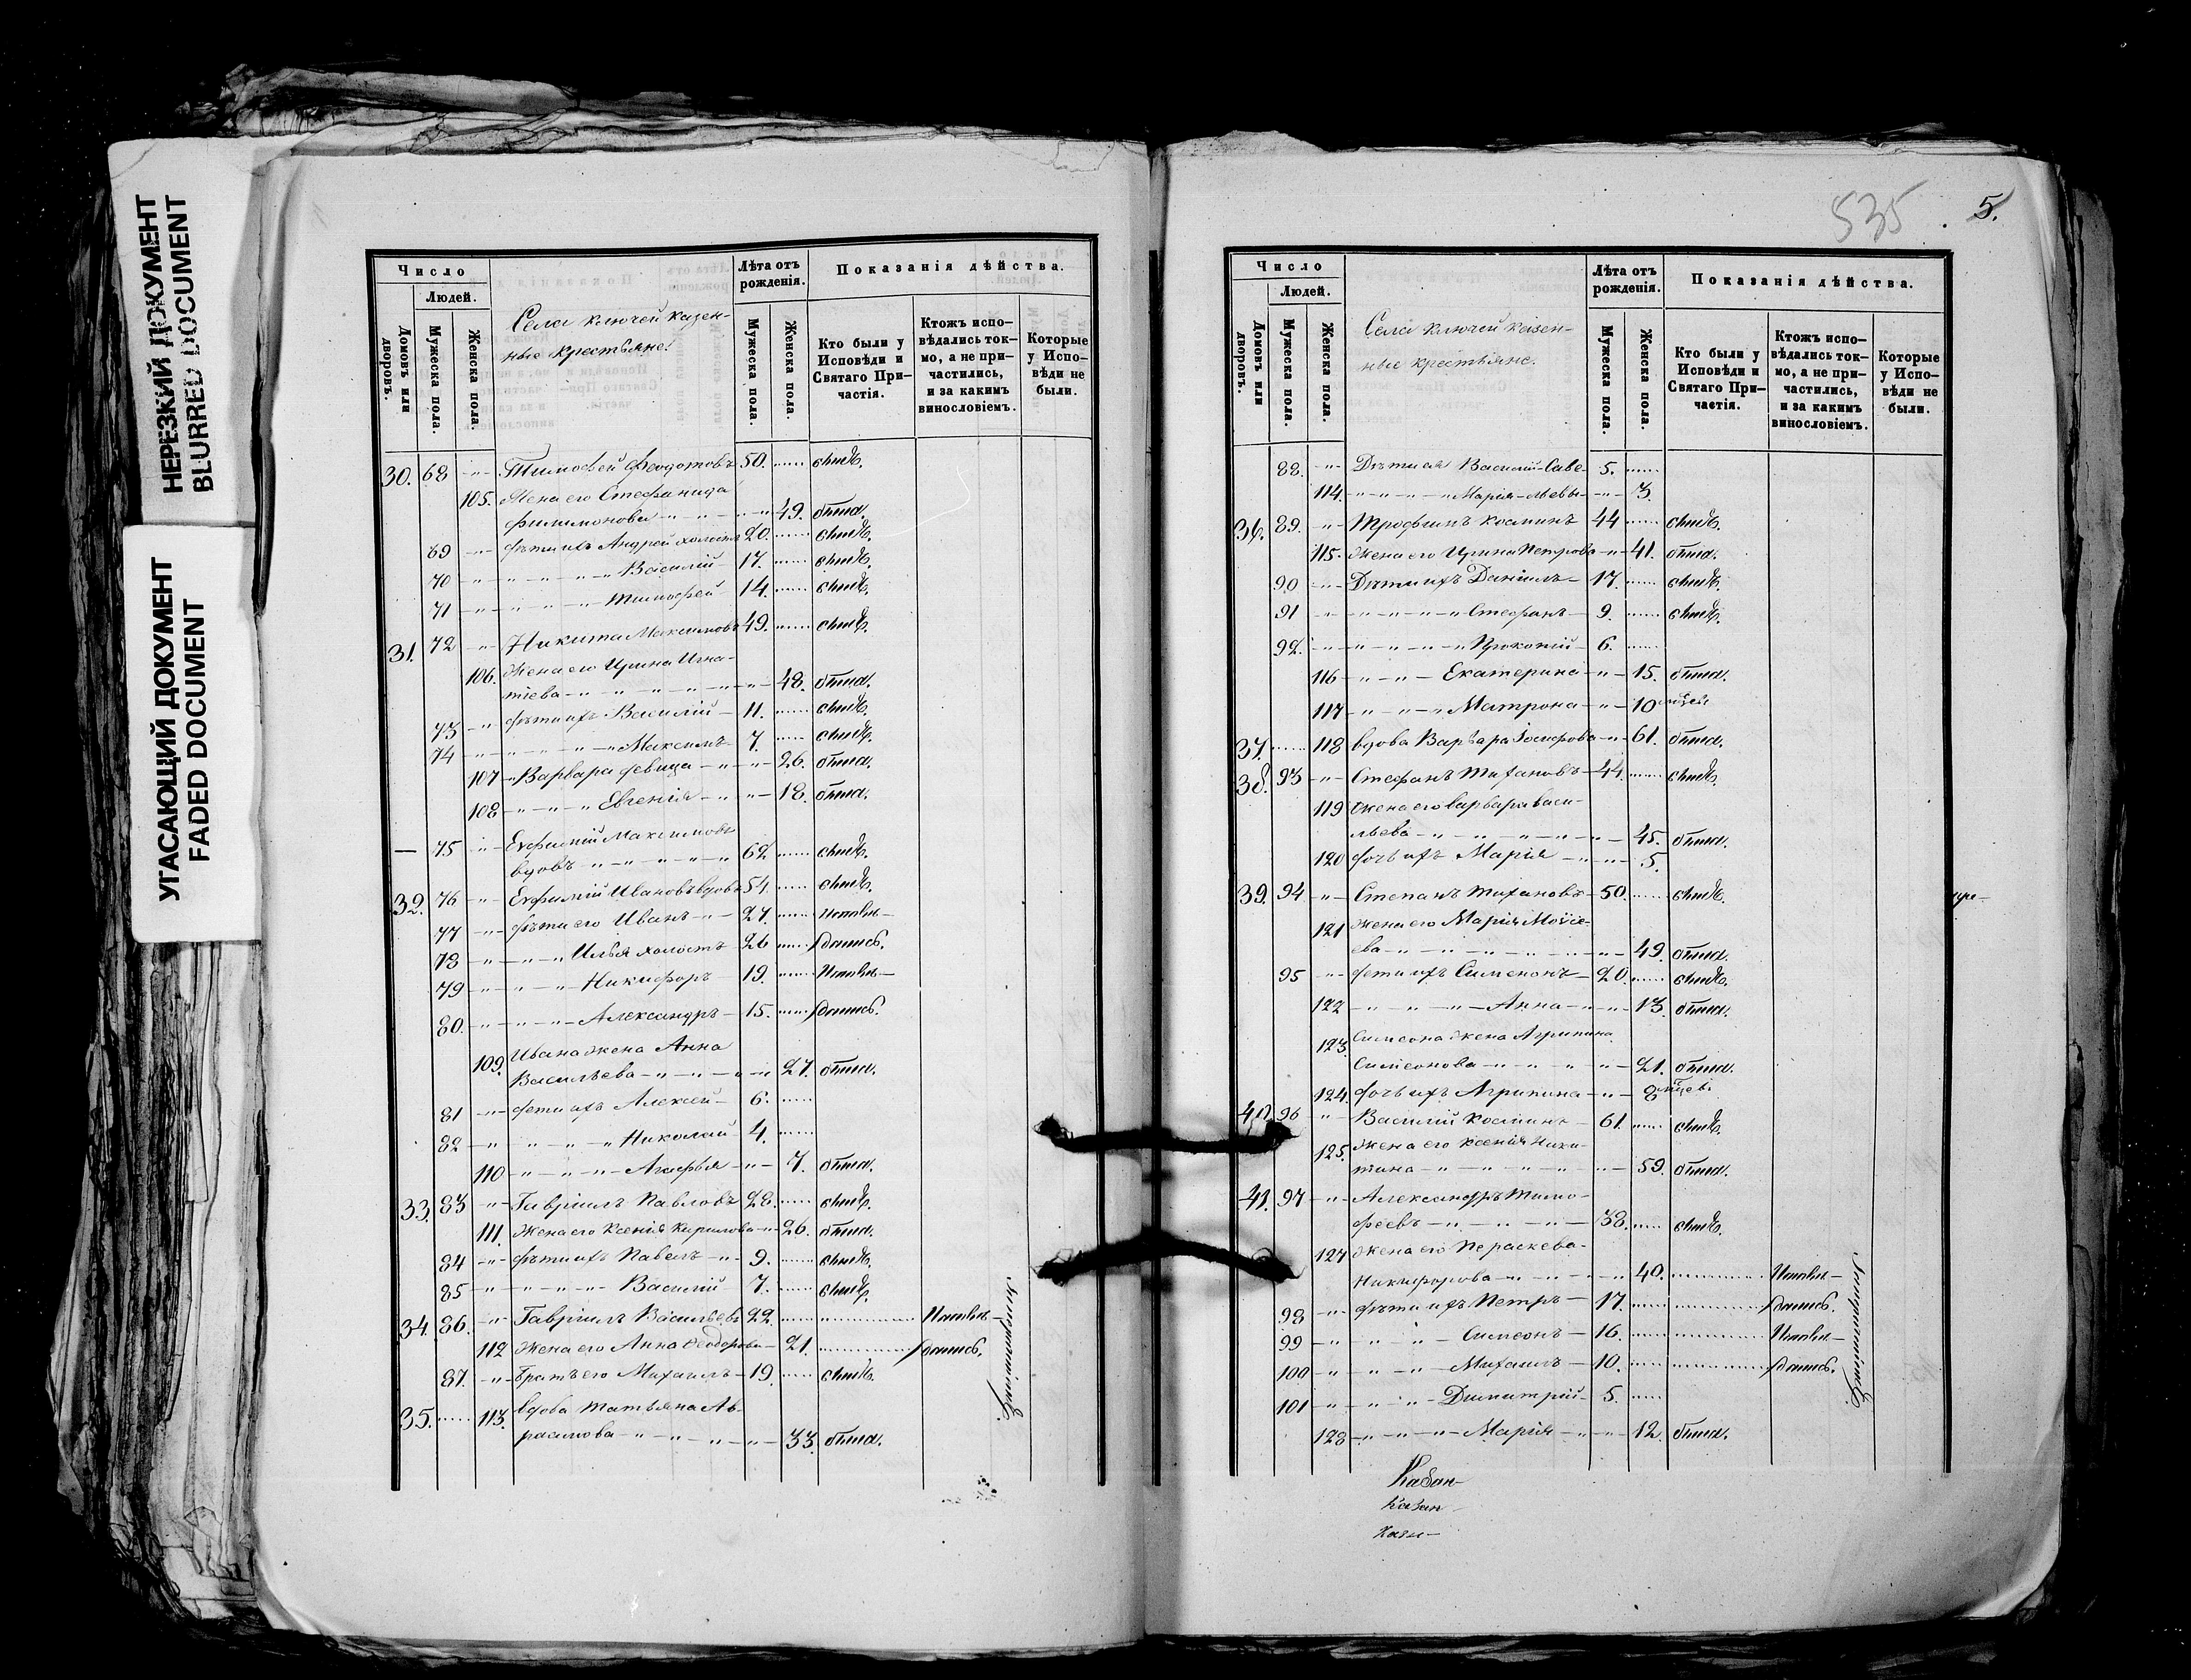 НЕРЕЗКИЙ ДОКУМЕНТ
BLURRED DOCUMENT
УГАСАЮЩИЙ ДОКУМЕНТ
FADED DOCUMENT
Число
Людей.
Домовъ или дворовъ.
Мужеска пола.
Женска пола.
Села Ключей казен-
ные крестьяне.
Лѣта отъ рожденія.
Мужеска пола.
Женска пола.
Показанія дѣйства.
Кто были у Исповѣди и Святаго При-частія.
Ктожъ испо-вѣдались ток-мо, а не при-частились, и за какимъ винословіемъ.
Которые у Испо-вѣди не были.
30. 68 Тимофей Феодотовъ 50.
105. Жена его Стефанида
Филимонова 49.
69 Дѣти ихъ Андрей холостъ 20.
70 Василий 17.
71 Тимофей 14.
31. 72 Никита Максимовъ 49.
106. Жена его Ирина Игна-
тіева 48.
73 Дѣти ихъ Василій 11.
74 Максимъ 7.
107 Варвара девица 26.
108 Евгенія 18.
75 Евфимій Максимовъ
вдовъ 62
32. 76 Евфимій Ивановъ вдовъ 54.
77 Дѣти его Иванъ 27.
78 Илья холостъ 26
79 Никифоръ 19.
80. Александръ 15.
109. Ивана жена Анна
Васильева 27.
81 Дети ихъ Алексей 6.
82 Николай 4.
110 Агафья 7.
33. 83 Гавріилъ Павловъ 28.
111. Жена его Ксенія Кирилова 26.
84 Дѣти ихъ Павелъ 9.
85 Василій 7.
34. 86. Гавріилъ Васильевъ 22.
112 Жена его Анна Феодорова 21.
87. Братъ его Михаилъ 19.
35. 113. Вдова Татьяна Ав-
рамова 33.
535 5.
Число
Людей.
Домовъ или дворовъ.
Мужеска пола.
Женска пола.
Села Ключей казен-
ные крестьяне.
Лѣта отъ рожденія.
Мужеска пола.
Женска пола.
Показанія дѣйства.
Кто были у Исповѣди и Святаго При-частія.
Ктожъ испо-вѣдались ток-мо, а не при-частились, и за какимъ винословіемъ.
Которые у Испо-вѣди не были.
88. Дѣти ея Василій Саве- 5.
114. Марія льевы 3.
36. 89. Трофимъ Косминъ 44
115. Жена его Ирина Петрова 41.
90 Дѣти ихъ Даніилъ 17.
91 Стефанъ 9.
92. Прокопій 6.
116 Екатерина 15.
117 Матрона 10
37. 118 Вдова Варвара Іосифова 61.
38. 93 Стефанъ Тихановъ 44.
119 Жена его Варвара Васи-
льева 45.
120 Дочь ихъ Марія 5.
39. 94. Степанъ Тихановъ 50.
121 Жена его Марія Моісе-
ева 49.
95 Дети ихъ Симеонъ 20.
122 Анна 13.
123. Симеона жена Агрипина
Симеонова 21.
124. Дочь ихъ Агрипина 8
40. 96 Василій Космин 61.
125. Жена его Ксенія Ники-
тина 59.
41. 97 Александръ Тимо-
феевъ 38.
127 Жена его Пераскева
Никифорова 40.
98 Дѣти ихъ Петръ 17.
99 Симеонъ 16.
100 Михаилъ 10.
101 Димитрій 5.
128 Марія 12.
Казан-
Казан-